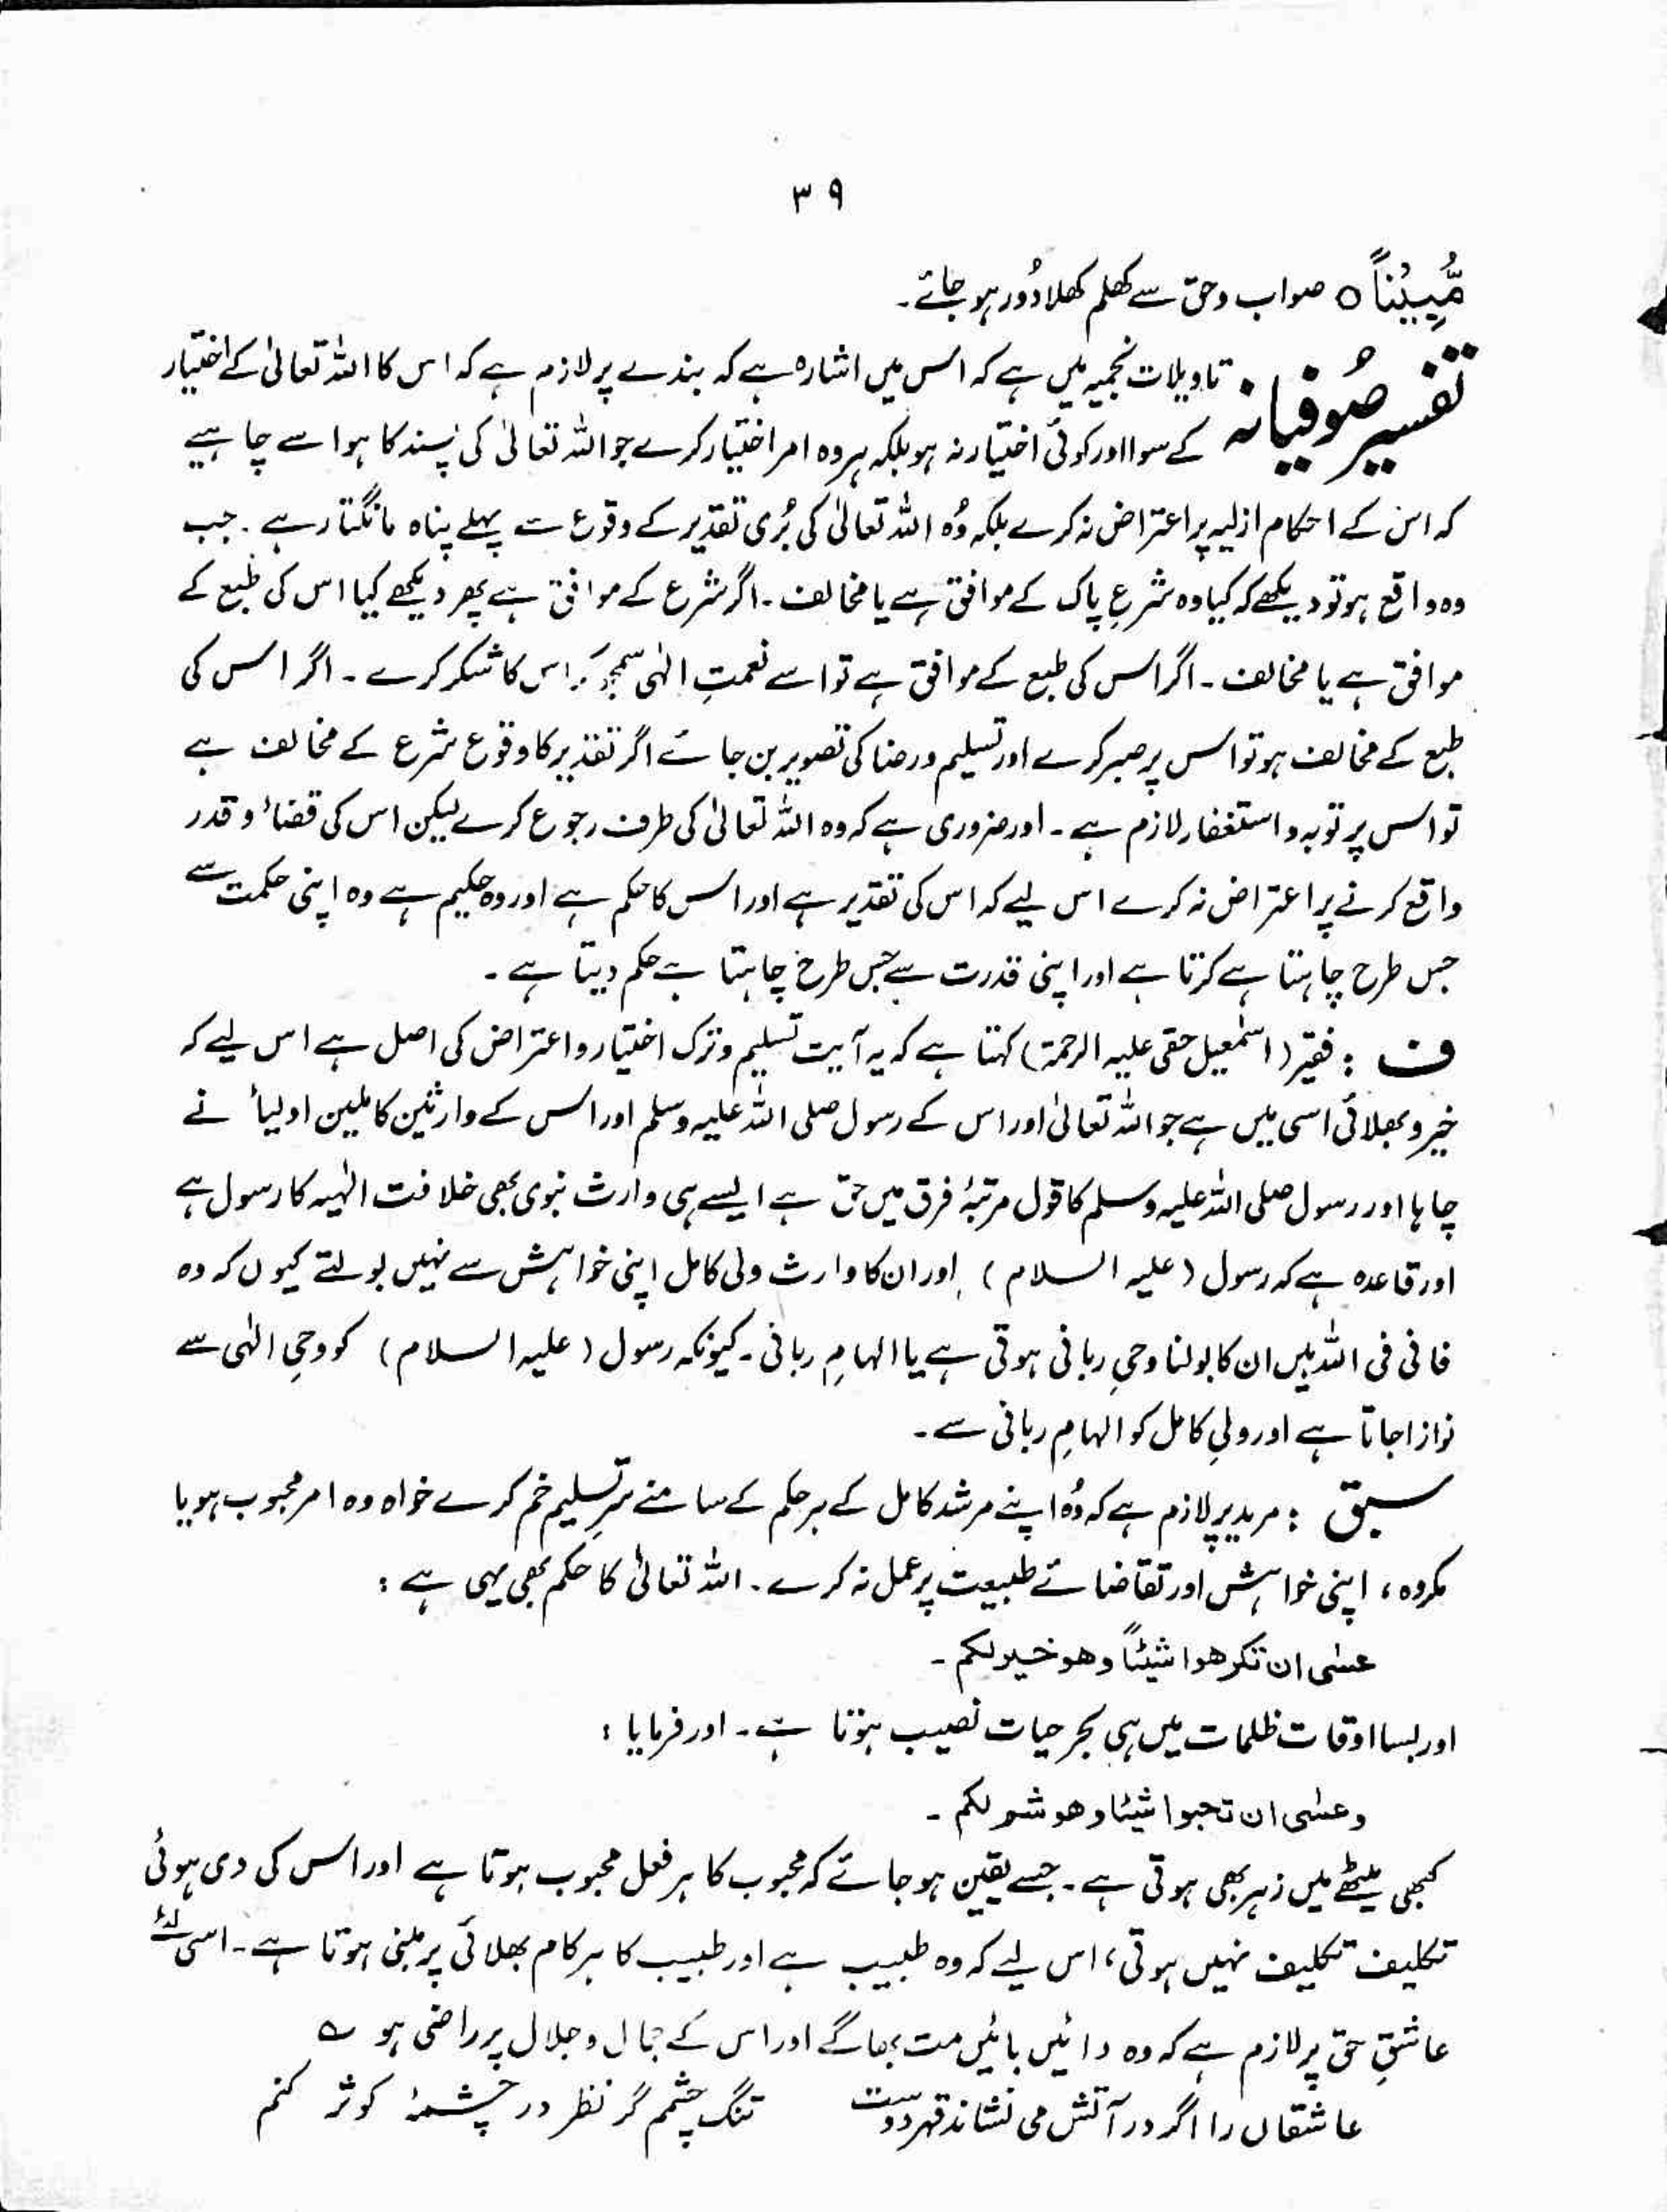 ۳۹
مُّبِیۡنًا ○ صواب وحق سے کھلم کھلا دُور ہو جائے۔
تفسیر صُوفیانہ تاویلات نجمیہ میں ہے کہ اس میں اشارہ ہے کہ بندے پر لازم ہے کہ اس کا اللہ تعالیٰ کے اختیار
کے سوا اور کوئی اختیار نہ ہو بلکہ ہر وہ امر اختیار کرے جو اللہ تعالیٰ کی پسند کا ہو اسے چاہیے
کہ اس کے احکام ازلیہ پر اعتراض نہ کرے بلکہ وُہ اللہ تعالیٰ کی بُری تقدیر کے وقوع سے پہلے پناہ مانگتا رہے۔ جب
وہ واقع ہو تو دیکھے کہ کیا وہ شرعِ پاک کے موافق ہے یا مخالف۔ اگر شرع کے موافق ہے پھر دیکھے کیا اس کی طبع کے
موافق ہے یا مخالف۔ اگر اس کی طبع کے موافق ہے تو اسے نعمتِ الٰہی سمجھ کر اس کا شکر کرے۔ اگر اس کی
طبع کے مخالف ہو تو اس پر صبر کرے اور تسلیم و رضا کی تصویر بن جائے اگر تقدیر کا وقوع شرع کے مخالف ہے
تو اس پر توبہ و استغفار لازم ہے۔ اور ضروری ہے کہ وہ اللہ تعالیٰ کی طرف رجوع کرے لیکن اس کی قضاء و قدر
واقع کرنے پر اعتراض نہ کرے اس لیے کہ اس کی تقدیر ہے اور اس کا حکم ہے اور وہ حکیم ہے وہ اپنی حکمت سے
جس طرح چاہتا ہے کرتا ہے اور اپنی قدرت سے جس طرح چاہتا ہے حکم دیتا ہے۔
ف : فقیر (اسمٰعیل حقی علیہ الرحمۃ) کہتا ہے کہ یہ آیت تسلیم و ترک اختیار و اعتراض کی اصل ہے اس لیے کہ
خیر و بھلائی اسی میں ہے جو اللہ تعالیٰ اور اس کے رسول صلی اللہ علیہ وسلم اور اس کے وارثین کاملین اولیاء نے
چاہا اور رسول صلی اللہ علیہ وسلم کا قول مرتبۂ فرق میں حق ہے ایسے ہی وارث نبوی بھی خلافت الٰہیہ کا رسول ہے
اور قاعدہ ہے کہ رسول (علیہ السلام) اور ان کا وارث ولی کامل اپنی خواہش سے نہیں بولتے کیوں کہ وہ
فانی فی اللہ ہیں ان کا بولنا وحیِ ربانی ہوتی ہے یا الہامِ ربانی۔ کیونکہ رسول (علیہ السلام) کو وحیِ الٰہی سے
نوازا جاتا ہے اور ولیِ کامل کو الہامِ ربانی سے۔
سبق : مرید پر لازم ہے کہ وُہ اپنے مرشد کامل کے ہر حکم کے سامنے سرِ تسلیم خم کرے خواہ وہ امر محبوب ہو یا
مکروہ، اپنی خواہش اور تقاضائے طبیعت پر عمل نہ کرے۔ اللہ تعالیٰ کا حکم بھی یہی ہے :
عسٰی ان تکرھوا شیئاً وھو خیر لکم۔
اور بسا اوقات ظلمات میں ہی بحر حیات نصیب ہوتا ہے۔ اور فرمایا :
وعسٰی ان تحبوا شیئا وھو شر لکم۔
کبھی میٹھے میں زہر بھی ہوتی ہے۔ جسے یقین ہو جائے کہ محبوب کا ہر فعل محبوب ہوتا ہے اور اس کی دی ہوئی
تکلیف تکلیف نہیں ہوتی، اس لیے کہ وہ طبیب ہے اور طبیب کا ہر کام بھلائی پر مبنی ہوتا ہے۔ اسی لئے
عاشقِ حق پر لازم ہے کہ وہ دائیں بائیں مت بھاگے اور اس کے جمال و جلال پر راضی ہو ؎
عاشقاں را اگر در آتش می نشاند قہر دوست تنگ چشمم گر نظر در چشمۂ کوثر کنم